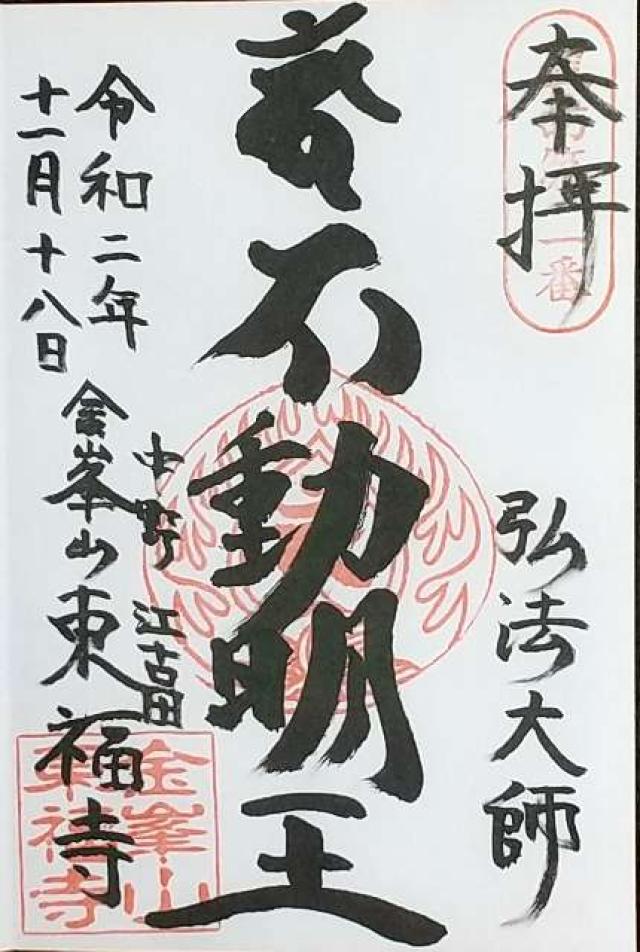 奉拝
弘法大師
不動明王
令和二年
十一月十八日
中野 江古田
金峯山東福寺
金峯山
東福寺